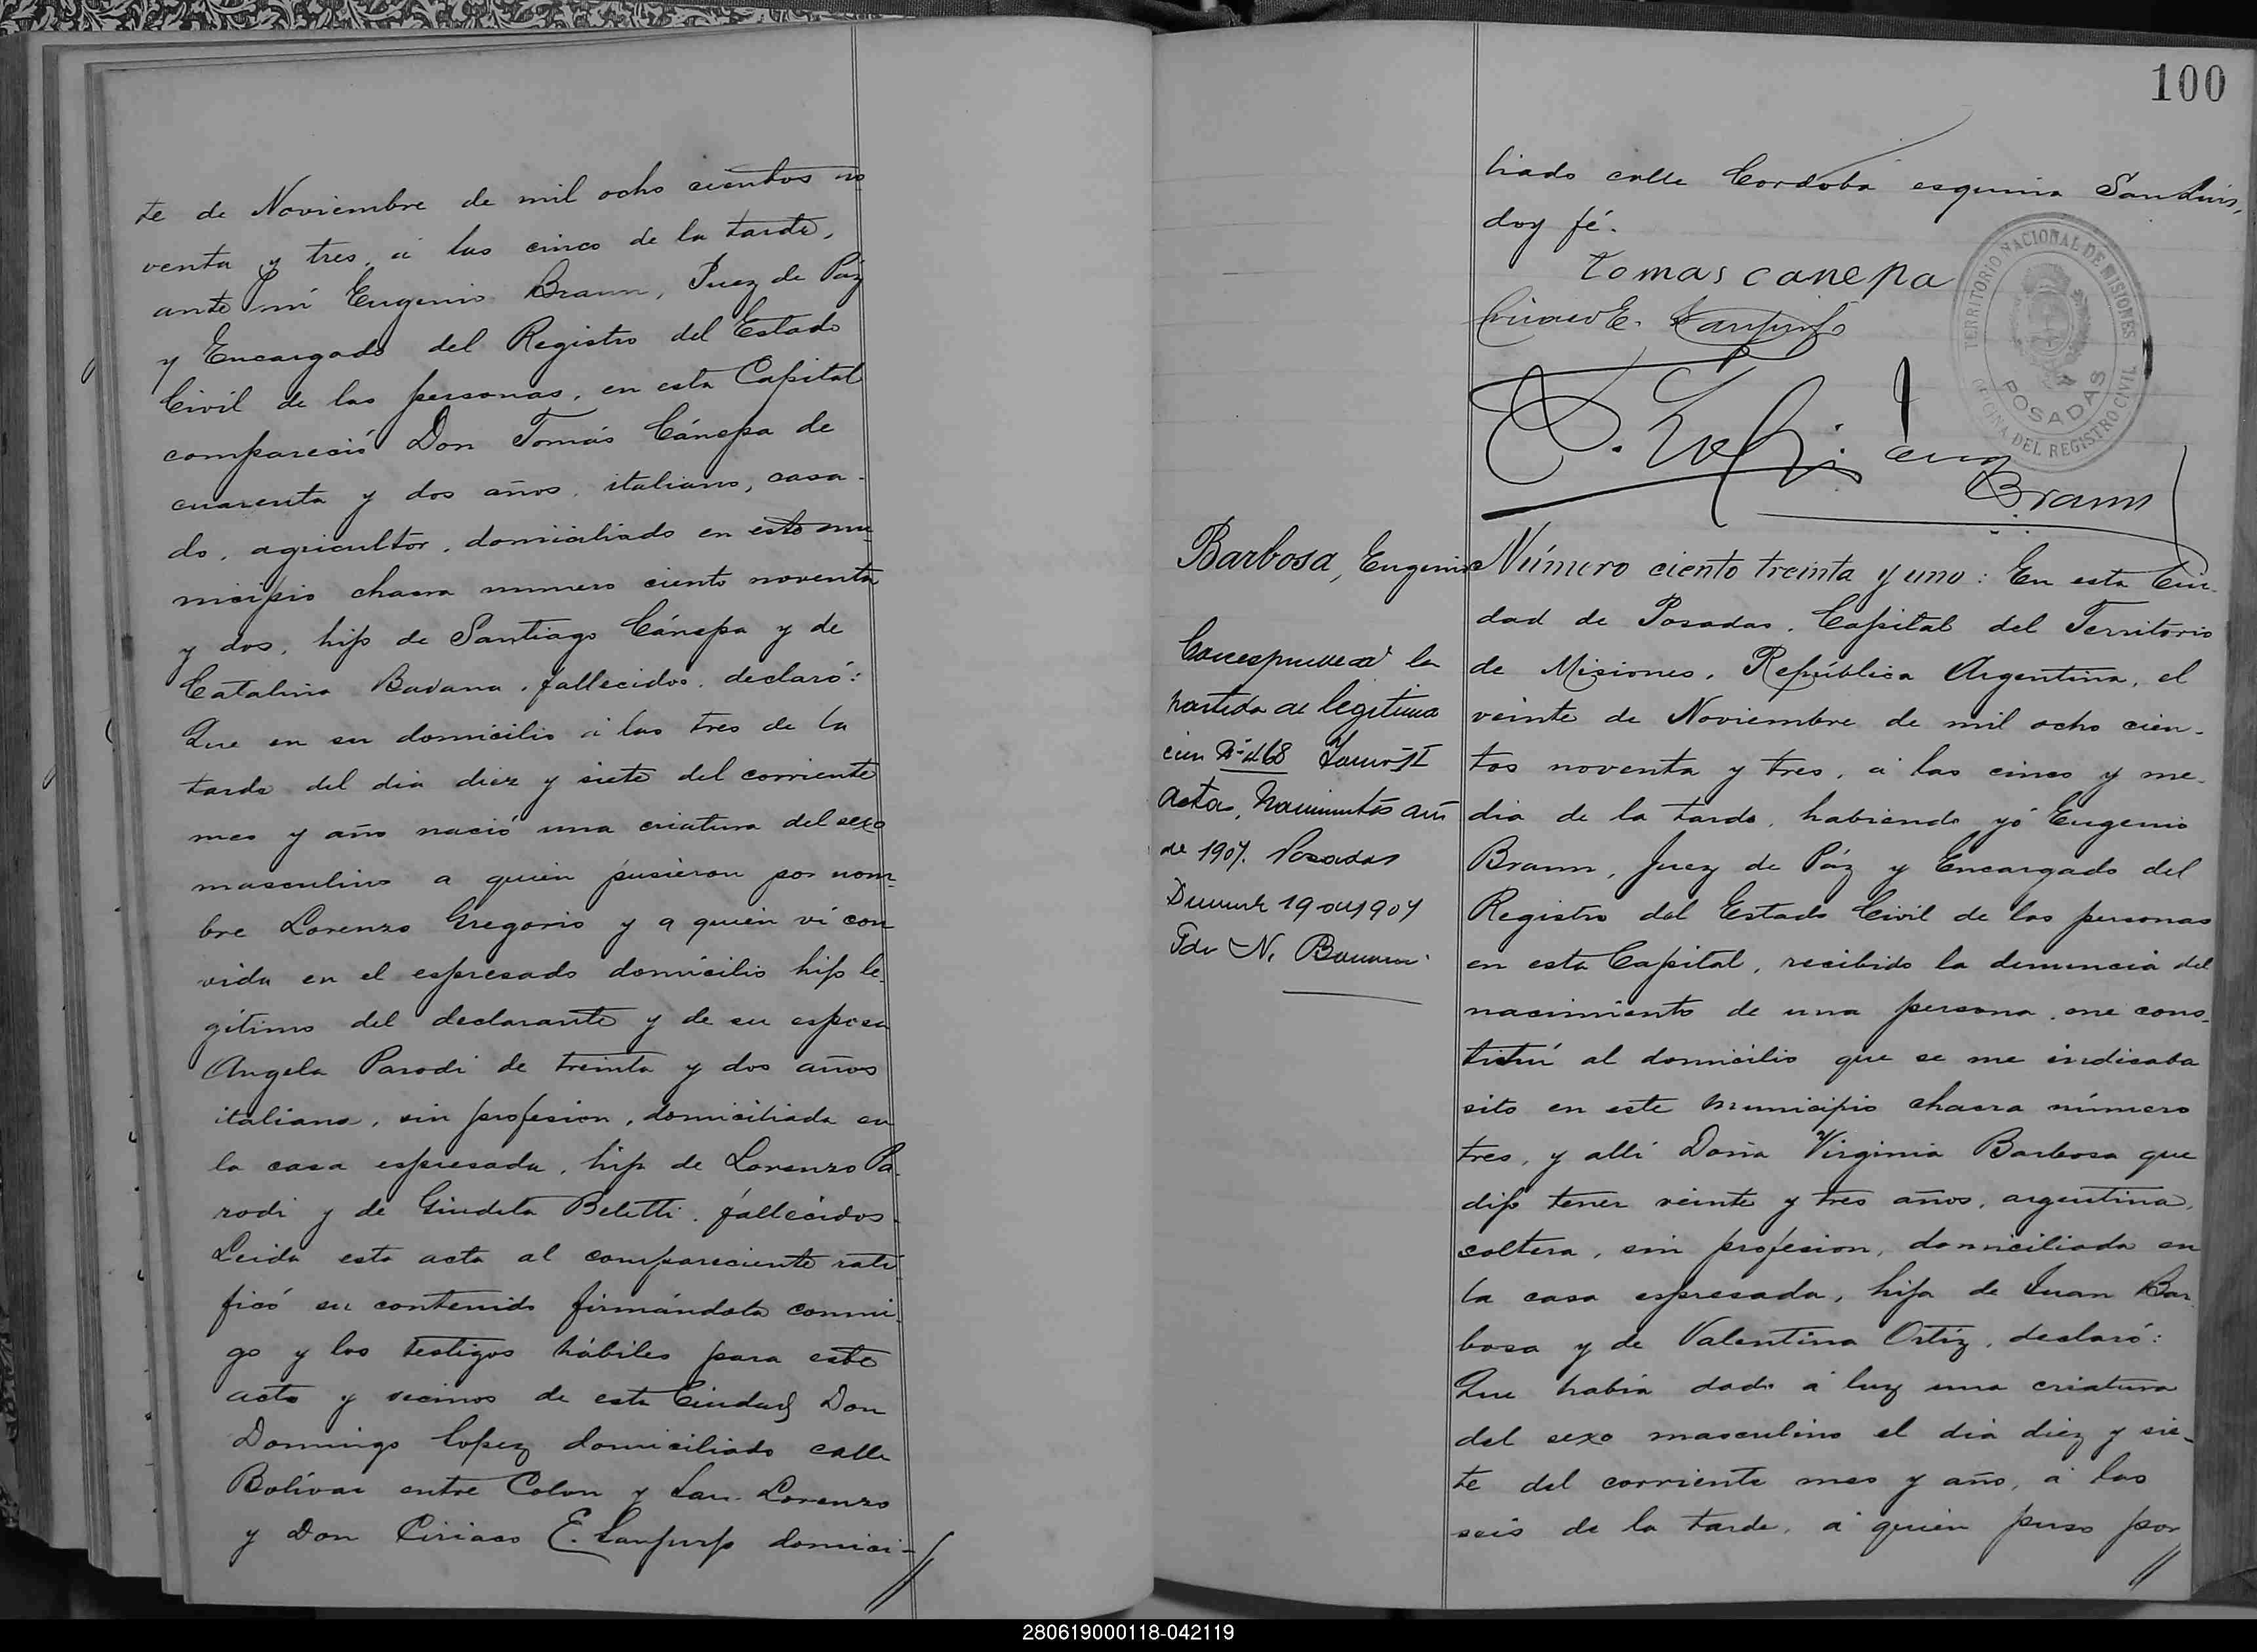 te de Noviembre de mil ocho cientos no
venta y tres, á las cinco de la tarde,
ante mí Eugenio Braun, Juez de Páz
y Encargado del Registro del Estado
Civil de las personas, en esta Capital
compareció Don Tomás Cánepa de
cuarenta y dos años, italiano, casa-
do, agricultor, domiciliado en este mu-
nicipio chacra numero ciento noventa
y dos, hijo de Santiago Cánepa y de
Catalina, fallecidos, declaró:
Que en su domicilio á las tres de la
tarde del dia diez y siete del corriente
mes y año nació una criatura del sexo
masculino a quien pusieron por nom-
bre Lorenzo Gregorio y a quien ví con
vida en el espresado domicilio hijo le-
gítimo del declarante y de su esposa
Angela Parodi de treinta y dos años
italiana, sin profesion, domiciliada en
la casa espresada, hija de Lorenzo Pa-
rodi y de Giudita Beletti, fallecidos.
Leida esta acta al compareciente rati
ficó su contenido firmándola conmi-
go y los testigos hábiles para este
acto y vecinos de esta Ciudad Don
Domingo Lopez domiciliado calle
Bolívar entre Colon y San Lorenzo
y Don Ciriaco E. domici-
100
liado calle Cordoba esquina San Luis,
doy fé.
tomas canepa
Ciriaco E.
Eug Braun
TERRITORIO NACIONAL DE MISIONES
POSADAS
OFICINA DEL REGISTRO CIVIL
Barbosa, Eugenio
Corresponde a la
partida de legitima
cion Nº 468 Tomo II
Acta, Nacimientos año
de 1907. Posadas
19 de 1907
N.
Número ciento treinta y uno: En esta Ciu-
dad de Posadas, Capital del Territorio
de Misiones, República Argentina, el
veinte de Noviembre de mil ocho cien-
tos noventa y tres, á las cinco y me-
dia de la tarde, habiendo yó Eugenio
Braun, Juez de Páz y Encargado del
Registro del Estado Civil de las personas
en esta Capital, recibido la denuncia del
nacimiento de una persona, me cons-
tituí al domicilio que se me indicaba
sito en este Municipio chacra número
tres, y allí Doña Virginia Barbosa que
dijo tener veinte y tres años, argentina,
soltera, sin profesion, domiciliada en
la casa espresada, hija de Juan Bar-
bosa y de Valentina Ortíz, declaró:
Que habia dado á luz una criatura
del sexo masculino el dia diez y sie-
te del corriente mes y año, á las
seis de la tarde, á quien puso por
280619000118-042119